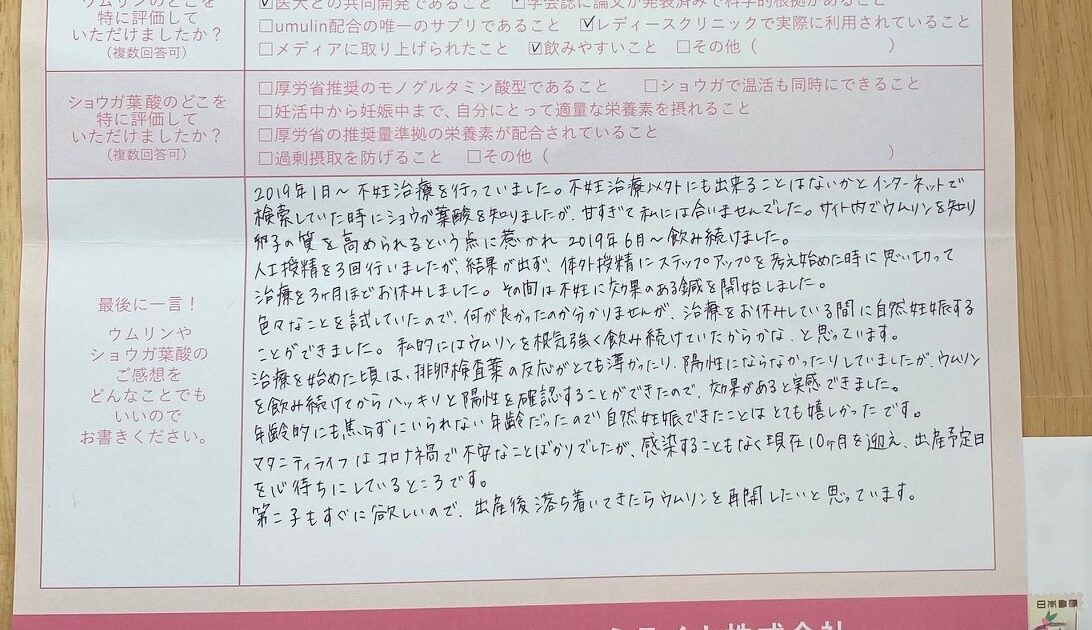 ウムリンのどこを
特に評価して
いただけましたか？
（複数回答可）
☑医大との共同開発であること ☑学会誌に論文が発表済みで科学的根拠があること
□umulin配合の唯一のサプリであること ☑レディースクリニックで実際に利用されていること
□メディアに取り上げられたこと ☑飲みやすいこと □その他（　　　　　　　　）
ショウガ葉酸のどこを
特に評価して
いただけましたか？
（複数回答可）
□厚労省推奨のモノグルタミン酸型であること □ショウガで温活も同時にできること
□妊活中から妊娠中まで、自分にとって適量な栄養素を摂れること
□厚労省の推奨量準拠の栄養素が配合されていること
□過剰摂取を防げること □その他（　　　　　　　　）
最後に一言！
ウムリンや
ショウガ葉酸の
ご感想を
どんなことでも
いいので
お書きください。
2019年1月〜 不妊治療を行っていました。不妊治療以外にも出来ることはないかとインターネットで
検索していた時にショウガ葉酸を知りましたが、甘すぎて私には合いませんでした。サイト内でウムリンを知り
卵子の質を高められるという点に惹かれ 2019年6月〜飲み続けました。
人工授精を3回行いましたが、結果が出ず、体外授精にステップアップを考え始めた時に思い切って
治療を3ヶ月ほどお休みしました。その間は不妊に効果のある鍼を開始しました。
色々なことを試していたので、何が良かったのか分かりませんが、治療をお休みしている間に自然妊娠する
ことができました。私的にはウムリンを根気強く飲み続けていたからかな、と思っています。
治療を始めた頃は、排卵検査薬の反応がとても薄かったり、陽性にならなかったりしていましたが、ウムリン
を飲み続けてからハッキリと陽性を確認することができたので、効果があると実感できました。
年齢的にも焦らずにいられない年齢だったので自然妊娠できたことはとても嬉しかったです。
マタニティライフはコロナ禍で不安なことばかりでしたが、感染することもなく現在10ヶ月を迎え、出産予定日
を心待ちにしているところです。
第二子もすぐに欲しいので、出産後落ち着いてきたらウムリンを再開したいと思っています。
日本郵便